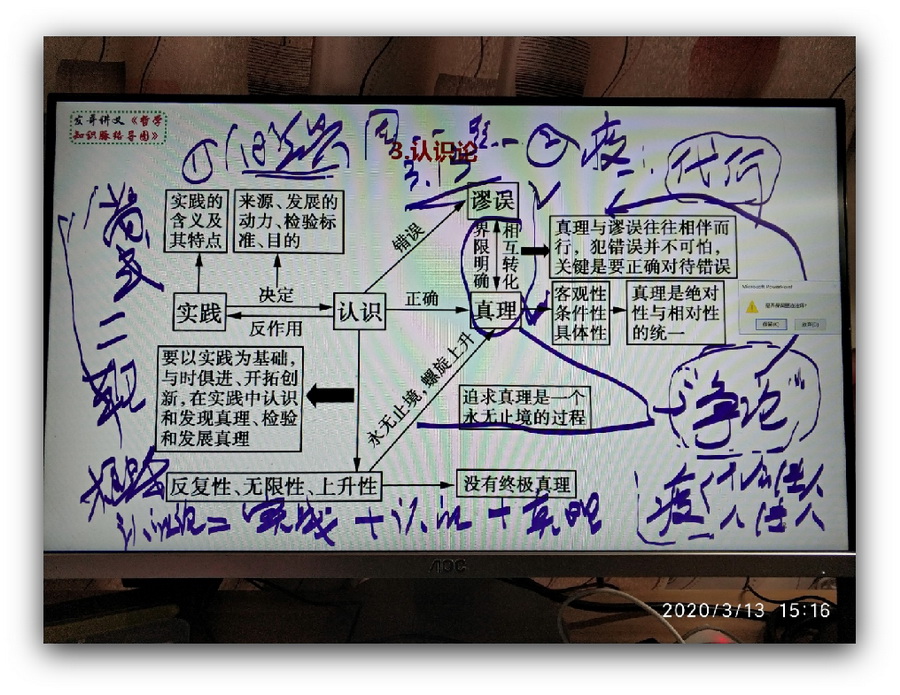 宏哥讲义《哲学
知识脉络导图》
3.认识论
① ②疫:
实践的
含义及
其特点
来源、发展的
动力、检验标
准、目的
谬误
错误
界限明确
相互转化
真理与谬误往往相伴而
行，犯错误并不可怕，
关键是要正确对待错误
实践
决定
反作用
认识
正确
真理
客观性
条件性
具体性
真理是绝对
性与相对性
的统一
要以实践为基础，
与时俱进、开拓创
新，在实践中认识
和发现真理、检验
和发展真理
永无止境，螺旋上升
追求真理是一个
永无止境的过程
"争论"
反复性、无限性、上升性
没有终极真理
认识论=实践+认识+真理
疫
AOC
2020/3/13 15:16